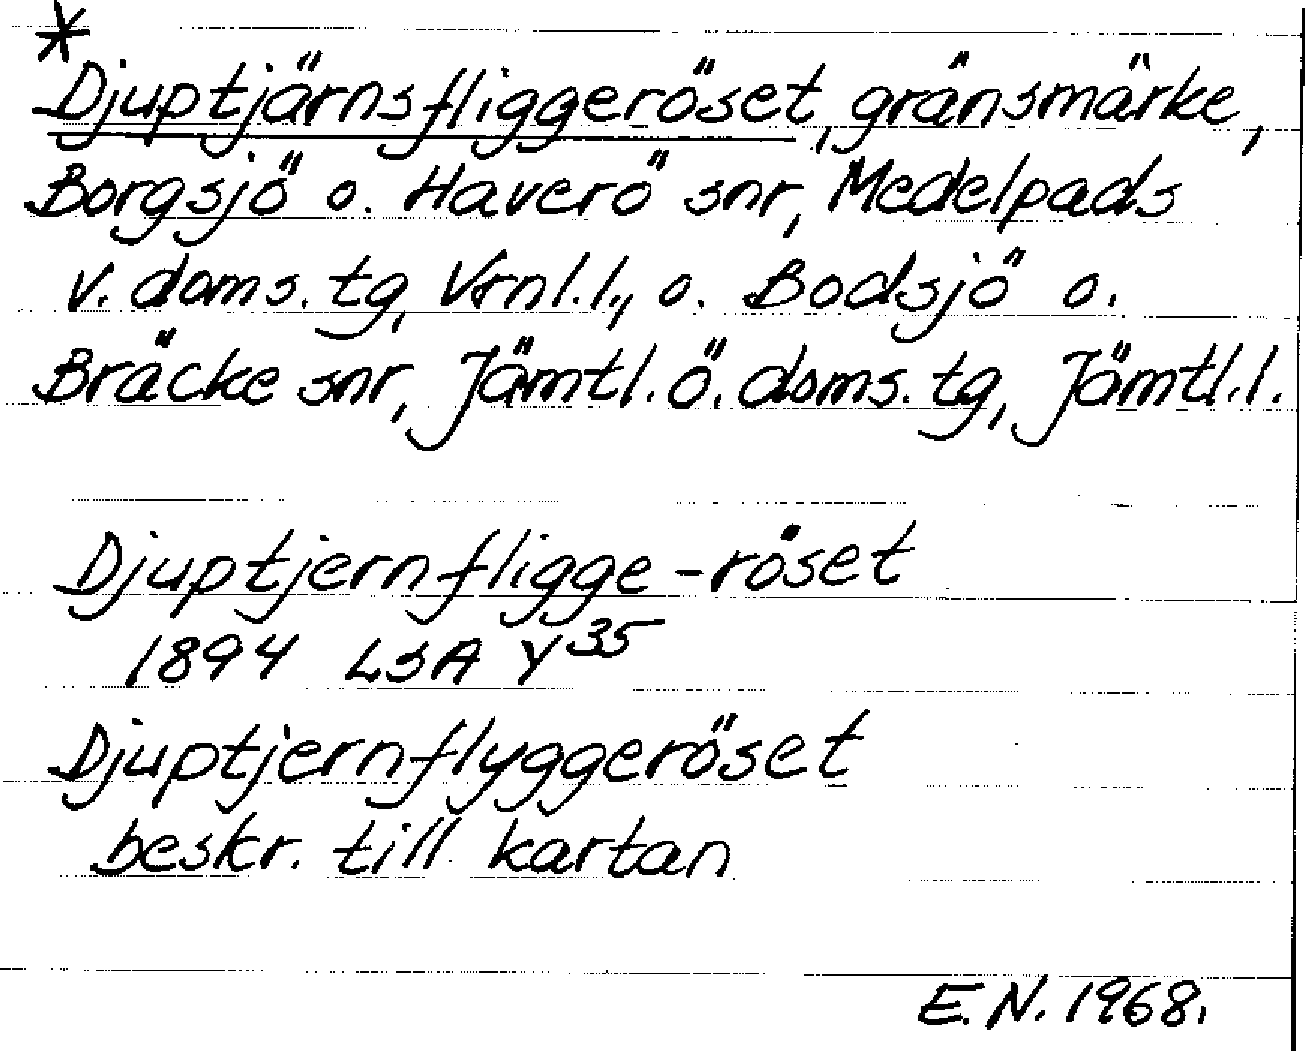 *
Djuptjärnsfliggeröset, gränsmärke,
Borgsjö o. Haverö snr, Medelpads
v. doms. tg, Vrnl. l., o. Bodsjö o.
Bräcke snr, Jämtl. ö. doms. tg, Jämtl. l.
Djuptjernfligge-röset
1894 LSA Y35
Djuptjernflyggeröset
beskr. till kartan
E. N. 1968.